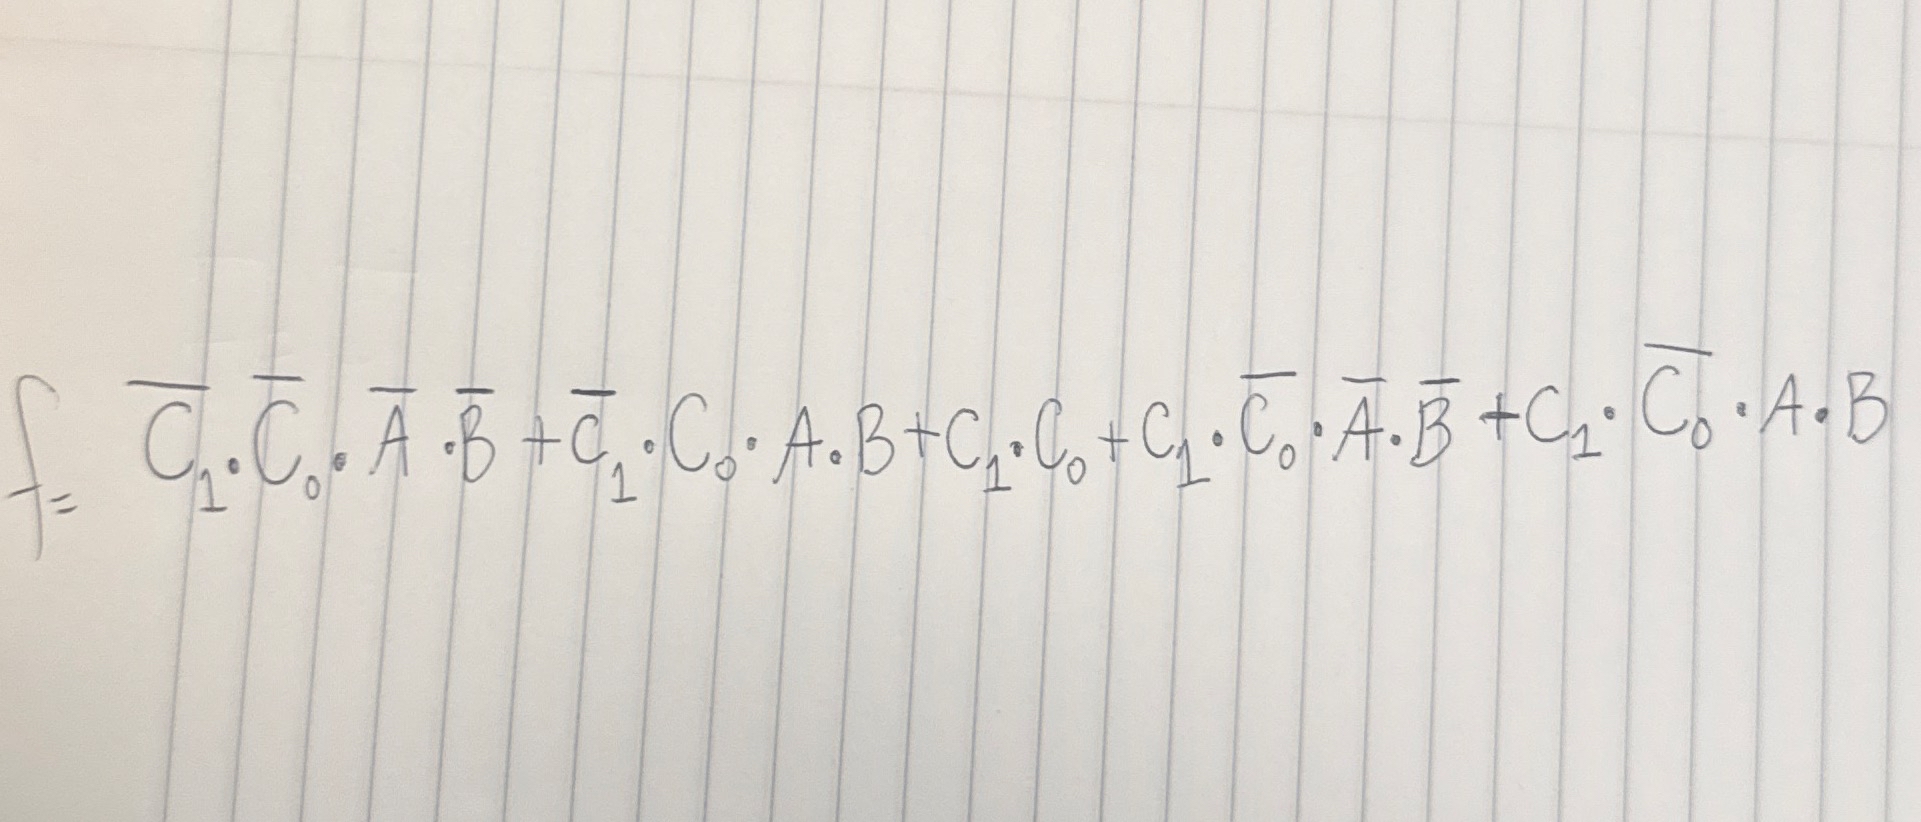 f = C̅₁·C̅₀·A̅·B̅ + C̅₁·C₀·A·B + C₁·C₀ + C₁·C̅₀·A̅·B̅ + C₁·C̅₀·A·B